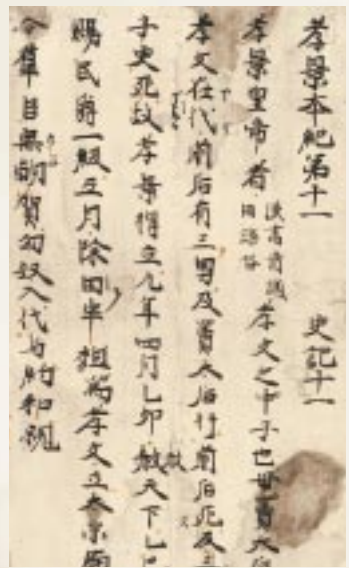 孝景本紀第十一 史記十一
孝景皇帝者漢書音義曰諱啓孝文之中子也母竇太后
孝文在代前后有三男及竇太后得幸前后死及三
子更死故孝景得立元年四月乙卯赦天下乙巳
賜民爵一級五月除田半租為孝文立太宗廟
令羣臣無朝賀匈奴入代与約和親